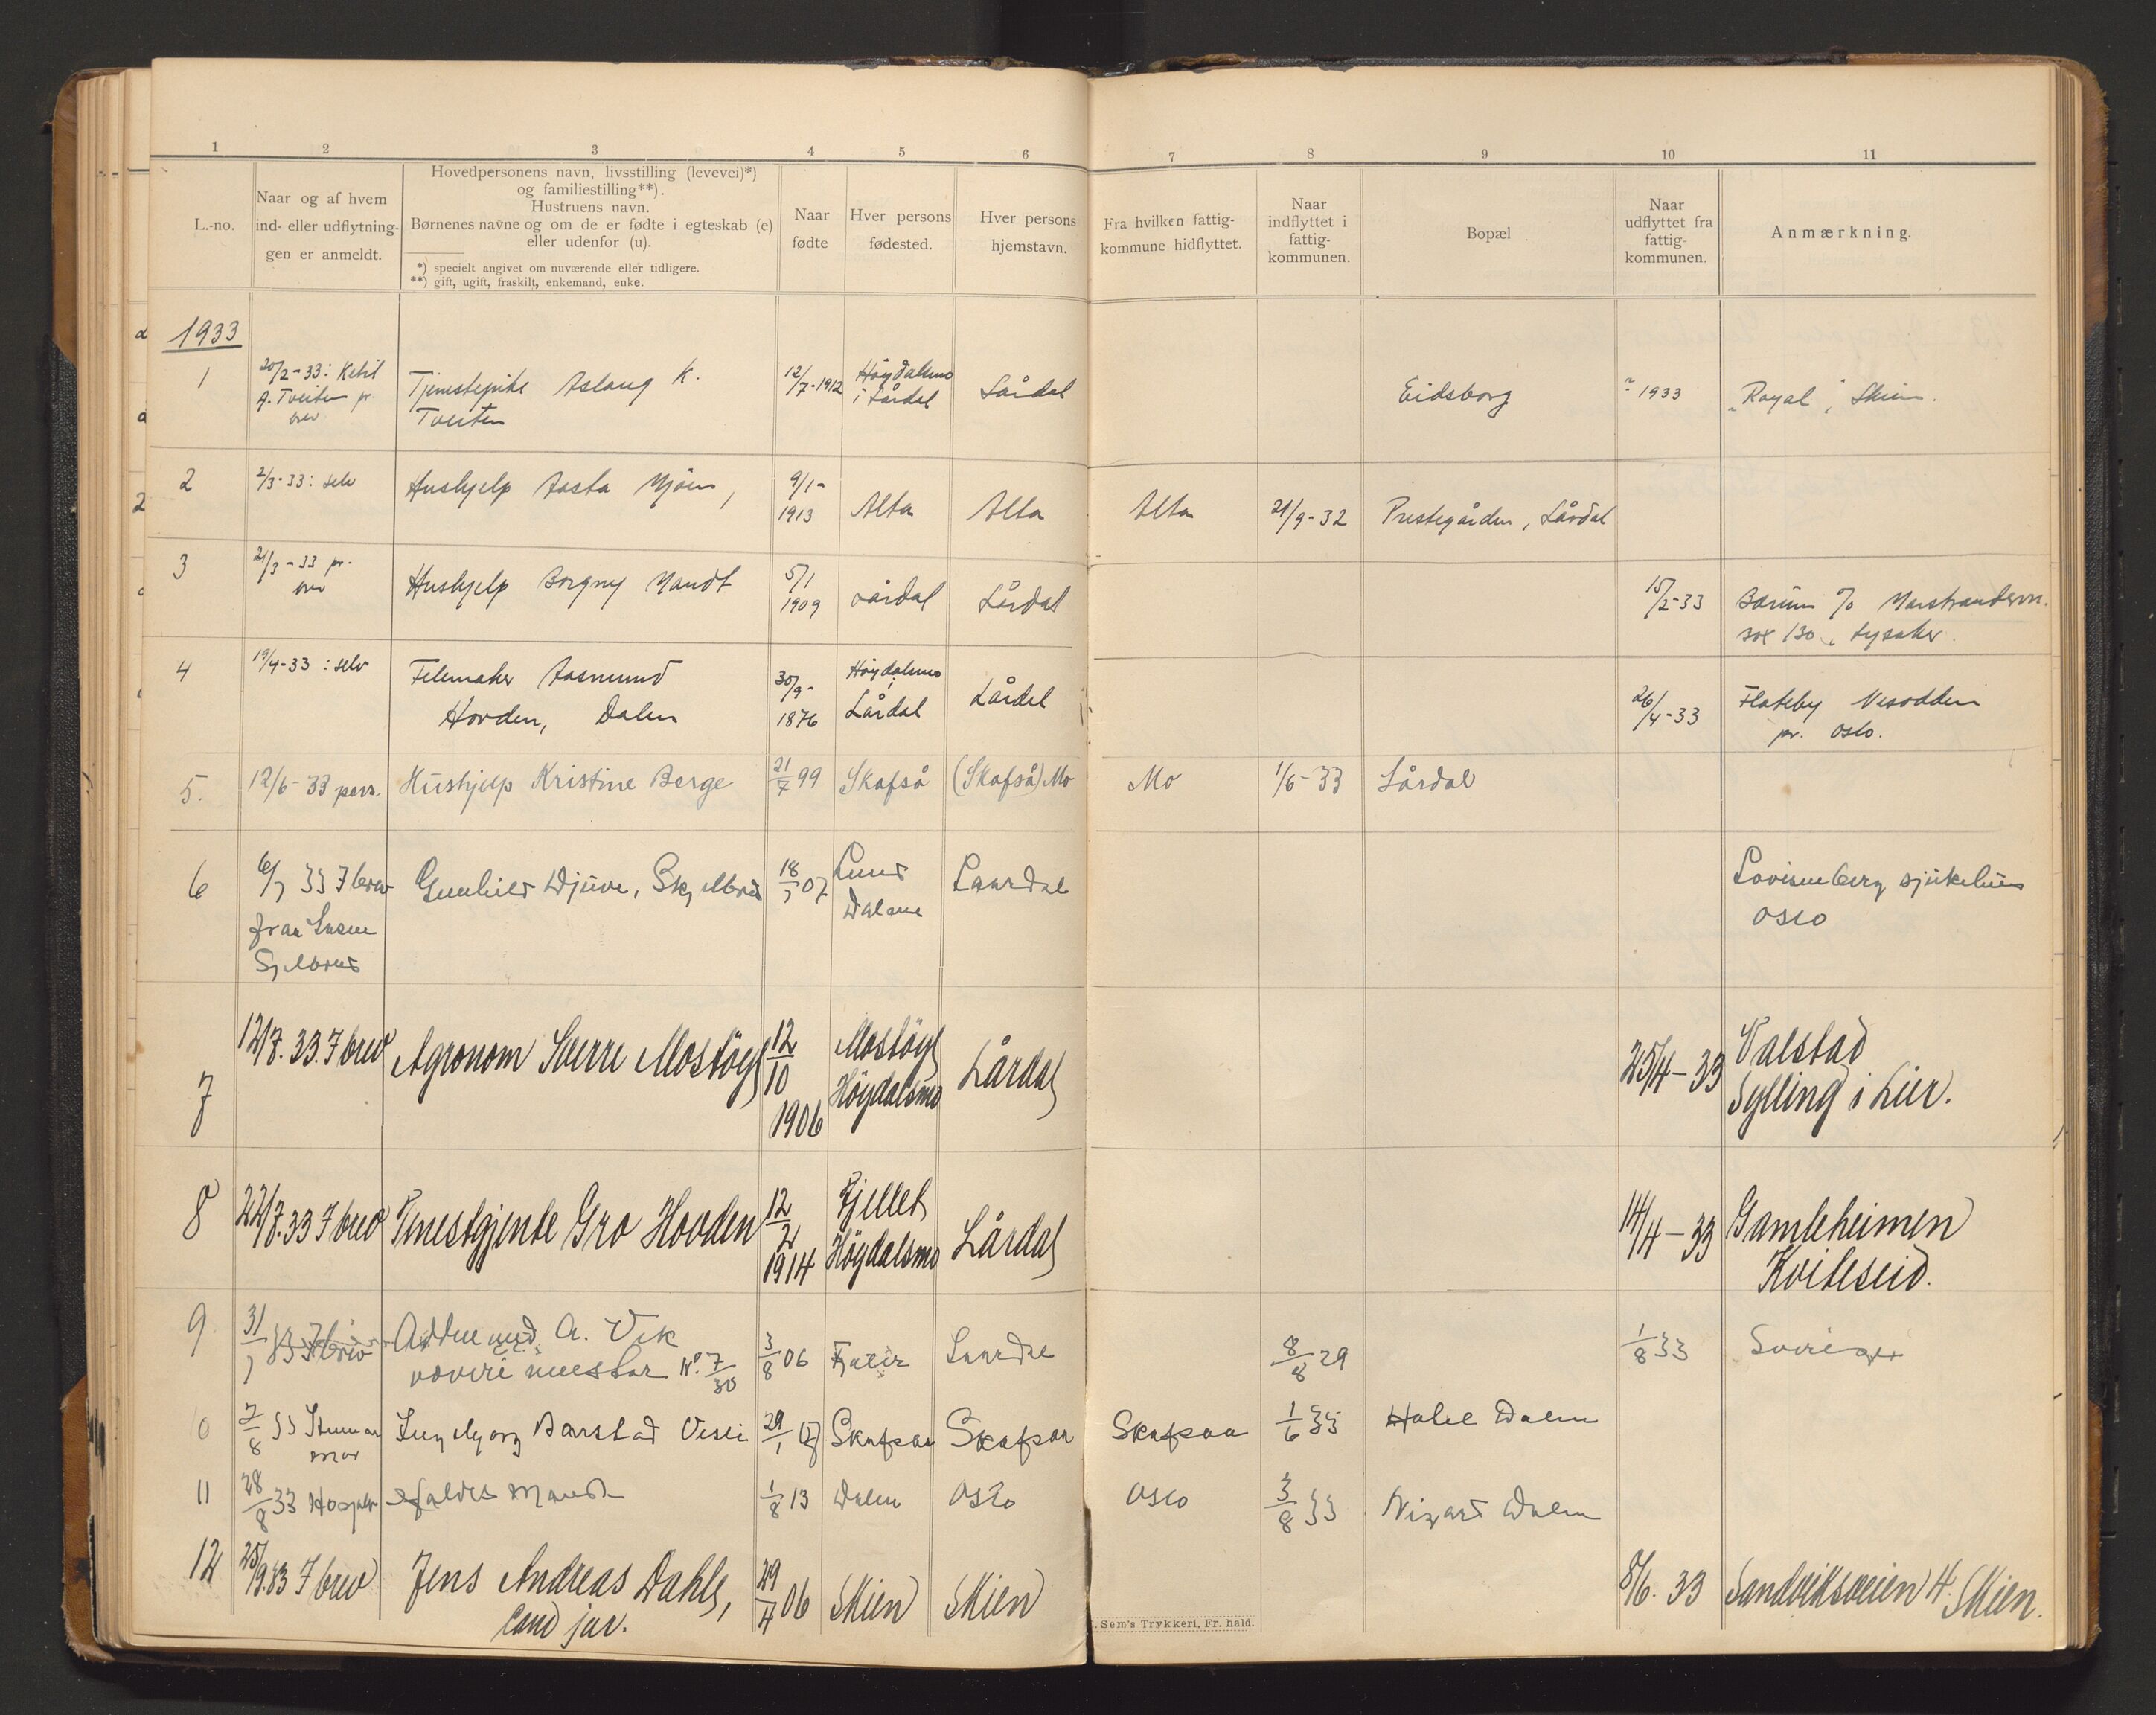 1 2 3 4 5 6 7 8 9 10 11
L.-no.
Naar og af hvem
ind- eller udflytnin-
gen er anmeldt.
Hovedpersonens navn, livsstilling (levevei)*)
og familiestilling**).
Hustruens navn.
Børnenes navne og om de er fødte i egteskab (e)
eller udenfor (u).
*) specielt angivet om nuværende eller tidligere.
**) gift, ugift, fraskilt, enkemand, enke.
Naar
fødte
Hver persons
fødested.
Hver persons
hjemstavn.
Fra hvilken fattig-
kommune hidflyttet.
Naar
indflyttet i
fattig-
kommunen.
Bopæl
Naar
udflyttet fra
fattig-
kommunen.
Anmærkning.
1933
1
20/2-33: Ketil
A. Tveiten pr.
brev
Tjenestepike Aslaug K.
Tveiten
12/7-1912
Høydalsmo
i Lårdal
Lårdal
Eidsborg
? 1933
"Royal", Skien.
2
2/3-33: selv
Hushjelp Aasta Mjöen,
9/1-
1913
Alta
Alta
Alta
21/9-32
Prestegården, Lårdal
3
21/3-33 pr.
brev
Hushjelp Borgny Mandt
5/1
1909
Lårdal
Lårdal
15/2-33
Bærum c/o
box 130, Lysaker.
4
19/4-33: selv
Filemaker Aasmund
Hovden, Dalen
30/9-
1876
Høydalsmo
i
Lårdal
Lårdal
26/4-33
Flateby Nesodden
pr. Oslo.
5.
12/6-33 pers.
Hushjelp Kristine Berge
21/7 99
Skafså
(Skafså) Mo
Mo
1/6-33
Lårdal
6
6/7 33 I brev
fraa
Gunhild Djuve,
18/7 07
Dalane
Laurdal
Lovisenberg sjukehus
Oslo
7
12/7.33. I brev
Agronom Sverre Mostöyl
12/10
1906
Mostöyl
Höydalsmo
Lårdal
25/4-33
Valstad
Sylling i Lier.
8
22/7.33 I brev
Tenestgjente Gro Hovden
12/2
1914
Fjellet
Höydalsmo
Lårdal
14/4-33
Gamleheimen
Kviteseid.
9
31/7 33 I brev
A. Vik
væveri mestar No 7/30
3/8 06
Laurdal
8/8 29
1/8 33
Sverige
10
7/8 33
mor
Ingebjorg Barstad Vesli
29/1
Skafsaa
Skafsaa
Skafsaa
1/6 33
Dalen
11
28/8 33
Mandt
1/8 13
Dalen
Oslo
Oslo
3/8 33
Dalen
12
25/9.33 I brev
Jens Andreas Dahl,
cand jur.
29/4 06
Skien
Skien
8/6. 33
Sandviksveien 4. Skien.
Sem's Trykkeri, Fr. hald.